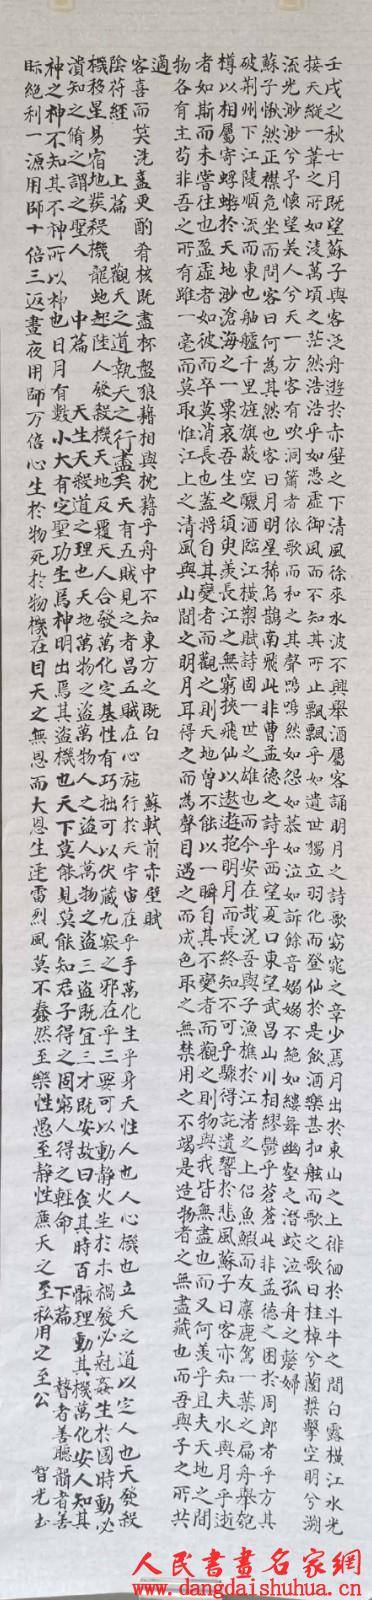 壬戌之秋七月既望蘇子與客泛舟遊於赤壁之下清風徐來水波不興舉酒屬客誦明月之詩歌窈窕之章少焉月出於東山之上徘徊於斗牛之間白露橫江水光
接天縱一葦之所如淩萬頃之茫然浩浩乎如憑虛御風而不知其所止飄飄乎如遺世獨立羽化而登仙於是飲酒樂甚扣舷而歌之歌曰桂棹兮蘭槳擊空明兮溯
流光渺渺兮予懷望美人兮天一方客有吹洞簫者依歌而和之其聲嗚嗚然如怨如慕如泣如訴餘音嫋嫋不絕如縷舞幽壑之潛蛟泣孤舟之嫠婦
蘇子愀然正襟危坐而問客曰何為其然也客曰月明星稀烏鵲南飛此非曹孟德之詩乎西望夏口東望武昌山川相繆鬱乎蒼蒼此非孟德之困於周郎者乎方其
破荆州下江陵順流而東也舳艫千里旌旗蔽空釃酒臨江橫槊賦詩固一世之雄也而今安在哉況吾與子漁樵於江渚之上侶魚鰕而友麋鹿駕一葉之扁舟舉匏
樽以相屬寄蜉蝣於天地渺滄海之一粟哀吾生之須臾羨長江之無窮挾飛仙以遨遊抱明月而長終知不可乎驟得託遺響於悲風蘇子曰客亦知夫水與月乎逝
者如斯而未嘗往也盈虛者如彼而卒莫消長也蓋將自其變者而觀之則天地曾不能以一瞬自其不變者而觀之則物與我皆無盡也而又何羨乎且夫天地之間
物各有主苟非吾之所有雖一毫而莫取惟江上之清風與山間之明月耳得之而為聲目遇之而成色取之無禁用之不竭是造物者之無盡藏也而吾與子之所共
適
客喜而笑洗盞更酌肴核既盡杯盤狼藉相與枕藉乎舟中不知東方之既白 蘇軾前赤壁賦
陰符經 上篇 觀天之道執天之行盡矣天有五賊見之者昌五賊在心施行於天宇宙在乎手萬化生乎身天性人也人心機也立天之道以定人也天發殺
機移星易宿地發殺機龍蛇起陸人發殺機天地反覆天人合發萬化定基性有巧拙可以伏藏九竅之邪在乎三要可以動靜火生於木禍發必尅姦生於國時動必
潰知之脩之謂之聖人 中篇 天生天殺道之理也天地萬物之盜萬物人之盜人萬物之盜三盜既宜三才既安故曰食其時百骸理動其機萬化安人知其
神之神不知其不神所以神也日月有數小大有定聖功生焉神明出焉其盜機也天下莫能見莫能知君子得之固窮人得之輕命 下篇 瞽者善聽聾者善
眎絕利一源用師十倍三返晝夜用師万倍心生於物死於物機在目天之無恩而大恩生迅雷烈風莫不蠢然至樂性愚至静性廉天之至私用之至公 智光书
人民書畫名家網
www.dangdaishuhua.cn